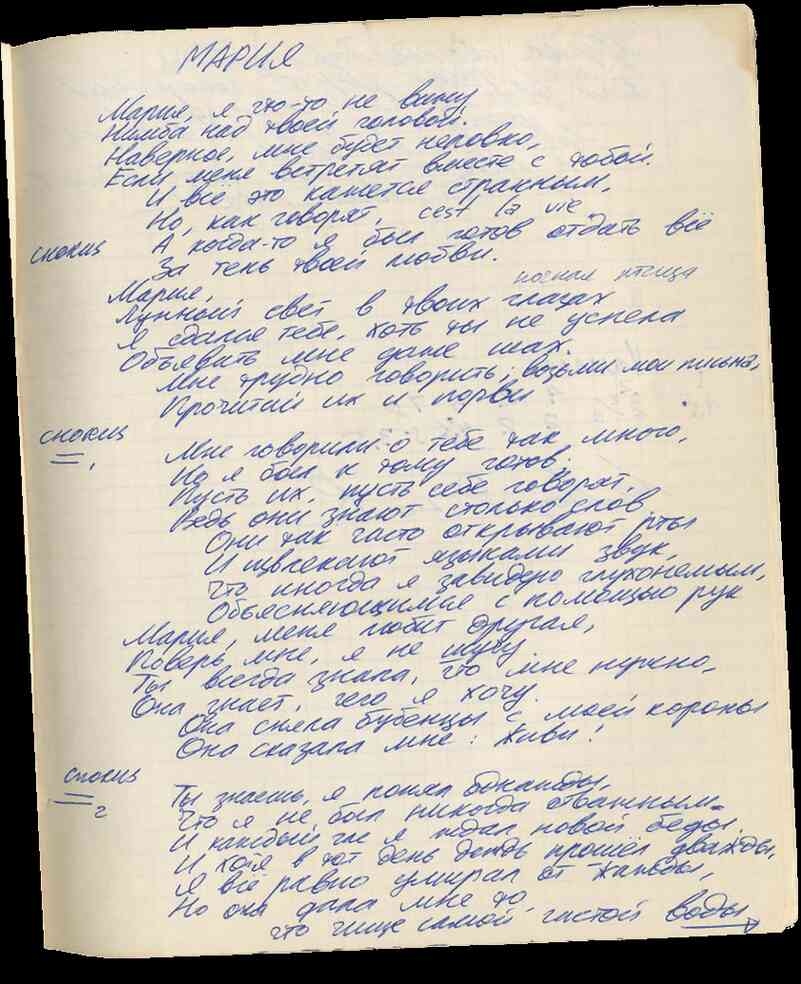 МАРИЯ
Мария, я что-то не вижу
Нимба над твоей головой.
Наверное, мне будет неловко,
Если меня встретят вместе с тобой.
И всё это кажется странным,
Но, как говорят, cest la vie
А когда-то я был готов отдать всё
За тень твоей любви.
Мария,
ночная птица
Лунный свет в твоих глазах
Я сдался тебе, хоть ты не успела
Объявить мне даже шах.
Мне трудно говорить; возьми мои письма,
Прочитай их и порви
Мне говорили о тебе так много,
Но я был к тому готов.
Пусть их, пусть себе говорят,
Ведь они знают столько слов
Они так часто открывают рты
И извлекают языками звук,
Что иногда я завидую глухонемым,
Объясняющимся с помощью рук
Мария, меня любит другая,
Поверь мне, я не шучу
Ты всегда знала, что мне нужно,
Она знает, чего я хочу.
Она сняла бубенцы с моей короны
Она сказала мне: Живи!
Ты знаешь, я понял однажды,
Что я не был никогда отважным
И каждый час я ждал новой беды
И хотя в тот день дождь прошёл дважды,
Я всё равно умирал от жажды,
Но она дала мне то,
что чище самой чистой воды